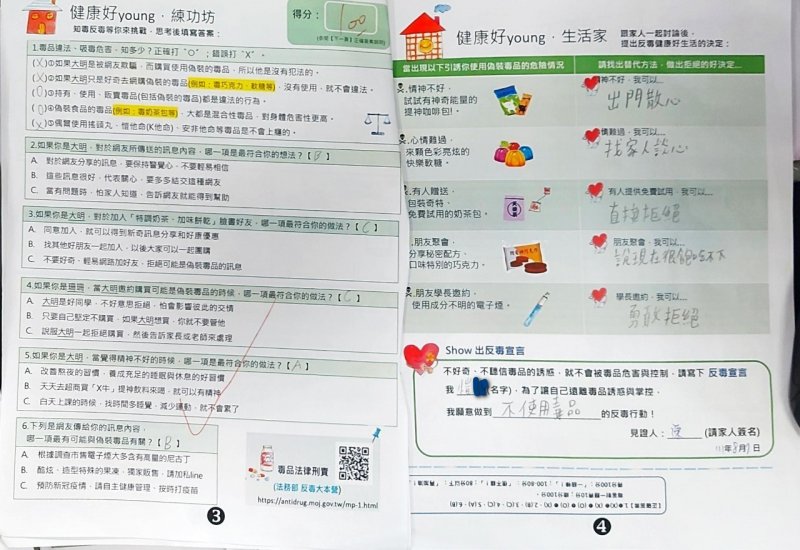 健康好young，練功坊
知毒反毒等你來挑戰，思考後填寫答案：
得分：
100
1.毒品違法、吸毒危害，知多少？正確打"O"；錯誤打"X"。
(X)①如果大明是被網友欺騙，而購買使用偽裝的毒品，所以他是沒有犯法的。
(X)②如果大明只是好奇去網購偽裝的毒品(例如：毒巧克力、軟糖等)，沒有使用，就不會違法。
(O)③持有、使用、販賣毒品(包括偽裝的毒品)都是違法的行為。
(O)④偽裝食品的毒品(例如：毒奶茶包等)，大都是混合性毒品，對身體危害性更高。
(X)⑤偶爾使用搖頭丸、愷他命(K他命)、安非他命等毒品是不會上癮的。
2.如果你是大明，對於網友所傳送的訊息內容，哪一項是最符合你的想法？【B】
A. 對於網友分享的訊息，要保持警覺心，不要輕易相信
B. 這些訊息很好，代表關心，要多多結交這種網友
C. 當有問題時，怕家人知道，告訴網友就能得到幫助
3.如果你是大明，對於加入「特調奶茶、加味餅乾」臉書好友，哪一項最符合你的做法？【C】
A. 同意加入，就可以得到新奇訊息分享和好康優惠
B. 找其他好朋友一起加入，以後大家可以一起團購
C. 不要好奇，輕易網路加好友，拒絕可能是偽裝毒品的訊息
4.如果你是珊珊，當大明邀約購買可能是偽裝毒品的時候，哪一項最符合你的做法？【C】
A. 大明是好同學，不好意思拒絕，怕會影響彼此的交情
B. 只要自己堅定不購買，如果大明想買，你就不要管他
C. 說服大明一起拒絕購買，然後告訴家長或老師來處理
5.如果你是大明，當覺得精神不好的時候，哪一項是最符合你的做法？【A】
A. 改善熬夜的習慣，養成充足的睡眠與休息的好習慣
B. 天天去超商買「X牛」提神飲料來喝，就可以有精神
C. 白天上課的時候，找時間多睡覺，減少運動，就不會累了
6.下列是網友傳給你的訊息內容，
哪一項最有可能與偽裝毒品有關？【B】
A. 根據調查市售電子煙大多含有高量的尼古丁
B. 酷炫、造型特殊的果凍，獨家販售，請加私line
C. 預防新冠疫情，請自主健康管理、按時打疫苗
毒品法律刑責
(法務部 反毒大本營)
https://antidrug.moj.gov.tw/mp-1.html
3
健康好young，生活家
跟家人一起討論後，
提出反毒健康好生活的決定：
當出現以下引誘你使用偽裝毒品的危險情況
請找出替代方法，做出拒絕的好決定...
.情神不好，
試試有神奇能量的
提神咖啡包！
神不好，我可以...
出門散心
.心情難過，
來顆色彩亮炫的
快樂軟糖。
情難過，我可以...
找家人談心
.有人贈送，
包裝奇特、
免費試用的奶茶包。
有人提供免費試用，我可以...
直接拒絕
.朋友聚會，
分享秘密配方、
口味特別的巧克力。
朋友聚會，我可以...
說現在很飽吃不下
.朋友學長邀約，
使用成分不明的電子煙。
學長邀約，我可以...
勇敢拒絕
Show 出反毒宣言
不好奇、不聽信毒品的誘惑，就不會被毒品危害與控制，請寫下 反毒宣言
我 (名字)，為了讓自己遠離毒品誘惑與掌控，
我願意做到 不使用毒品 的反毒行動！
見證人： (請家人簽名)
111年8月9日
4